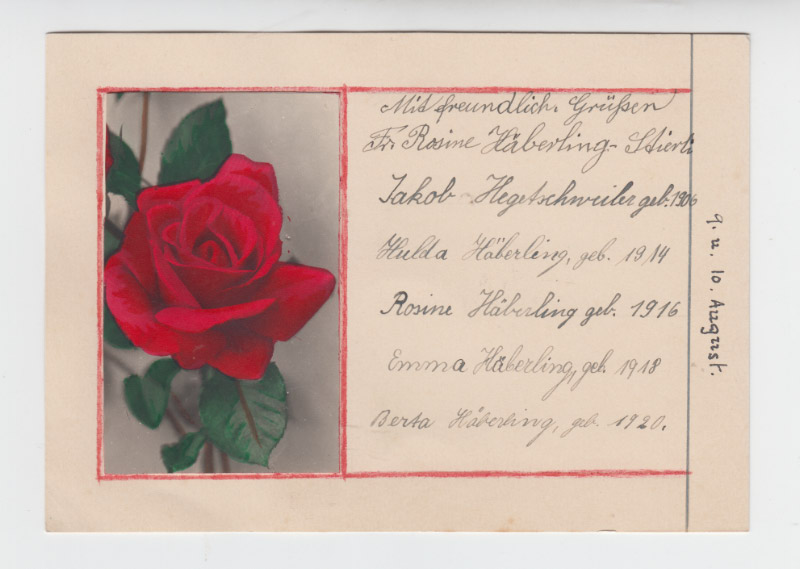 Mit freundlich. Grüßen
Fr. Rosine Häberling-Stierli
Jakob Hegetschweiler geb. 1906
Hulda Häberling, geb. 1914
Rosine Häberling geb. 1916
Emma Häberling, geb. 1918
Berta Häberling, geb. 1920.
9. u. 10. August.